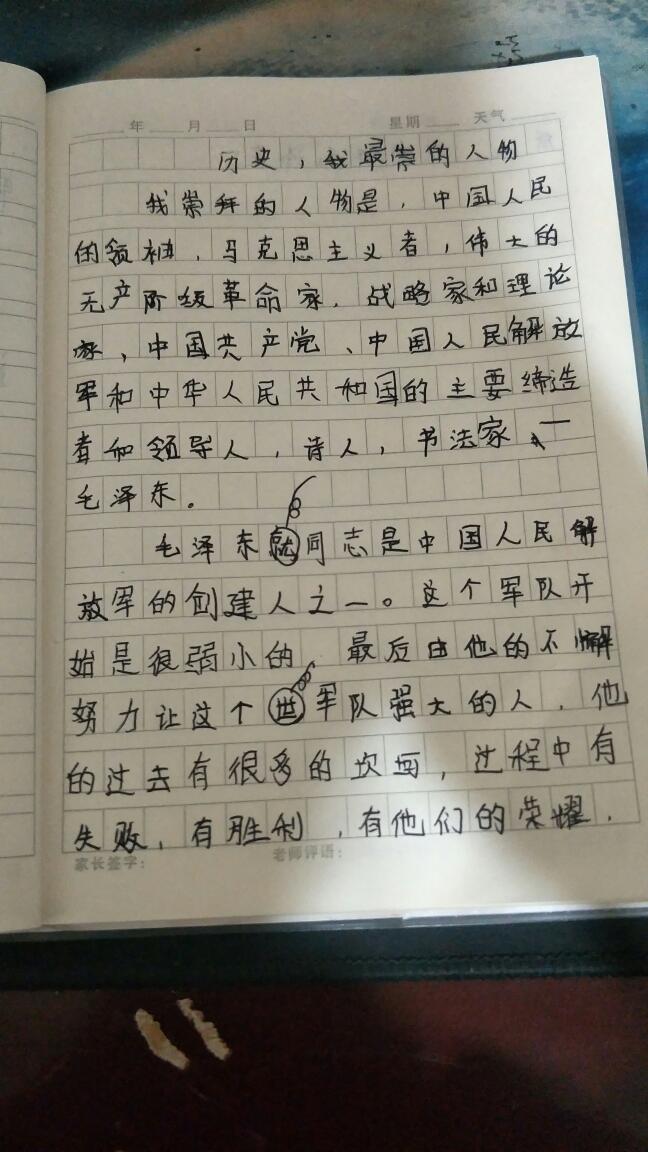 年 月 日 星期 天气
历史，我最崇的人物
我崇拜的人物是，中国人民
的领袖，马克思主义者，伟大的
无产阶级革命家，战略家和理论
家，中国共产党、中国人民解放
军和中华人民共和国的主要缔造
者和领导人，诗人，书法家，一
毛泽东。
毛泽东就同志是中国人民解
放军的创建人之一。这个军队开
始是很弱小的，最后由他的不懈
努力让这个世军队强大的人，他
的过去有很多的坎，过程中有
失败，有胜利，有他们的荣耀，
家长签字： 老师评语：